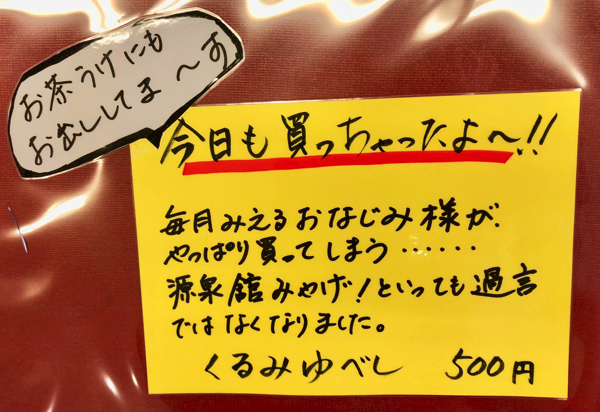 お茶うけにも
お出ししてま〜す
今日も買っちゃったよ〜!!
毎月みえるおなじみ様が、
やっぱり買ってしまう……
源泉館みやげ!といっても過言
ではなくなりました。
くるみゆべし 500円